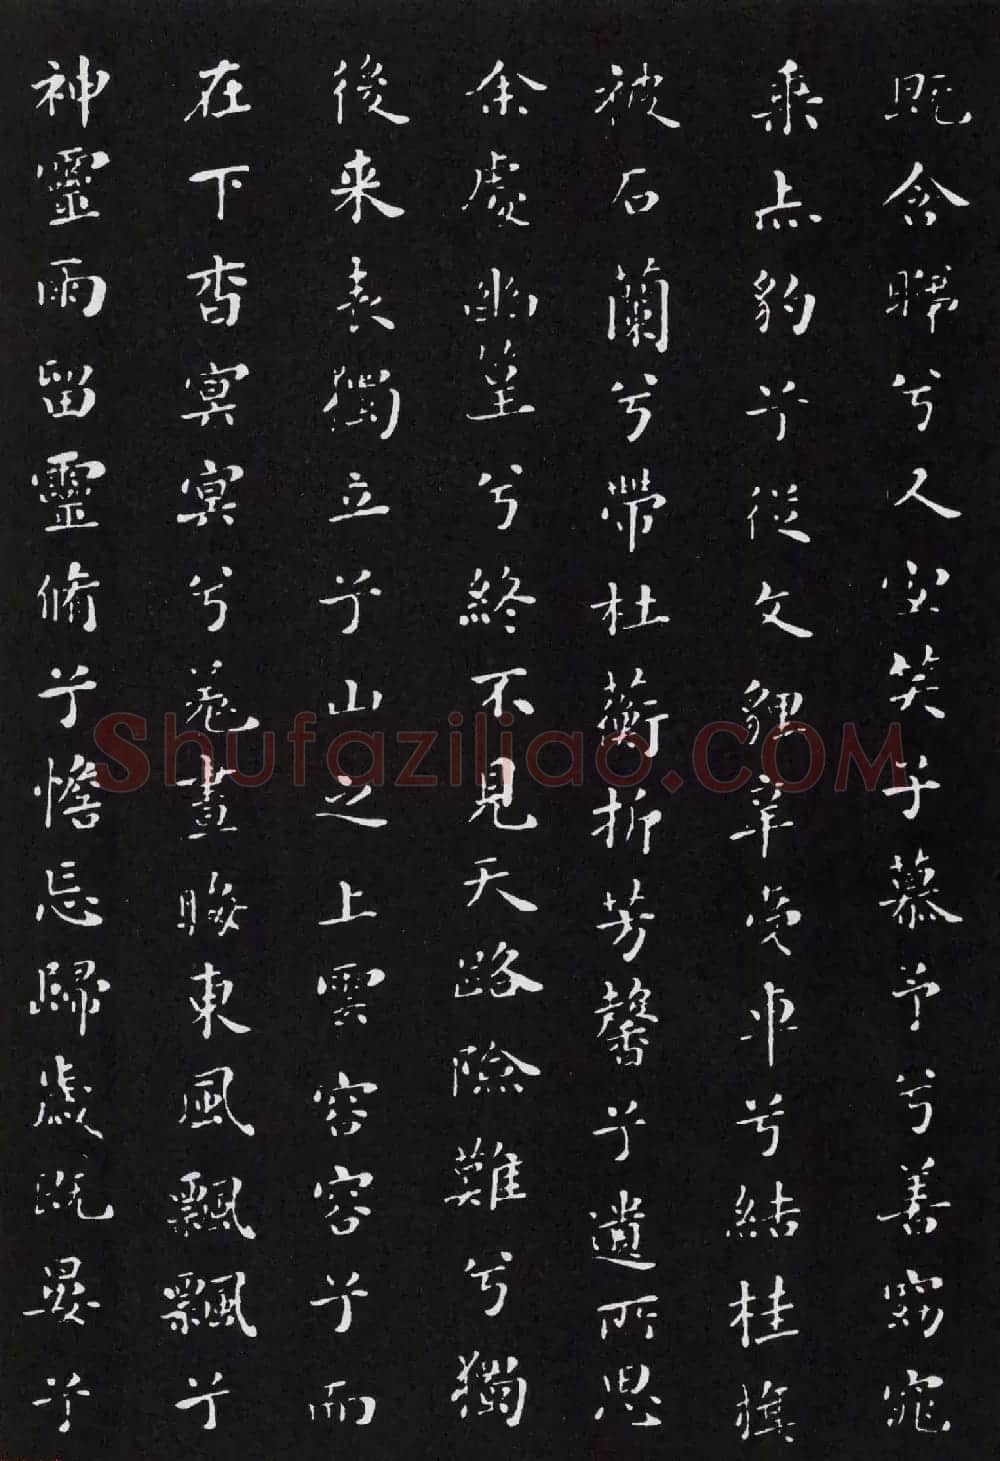 既含睇兮又宜笑子慕予兮善窈窕
乘赤豹兮從文貍辛夷車兮結桂旗
被石蘭兮帶杜蘅折芳馨兮遺所思
余處幽篁兮終不見天路險難兮獨
後来表獨立兮山之上雲容容兮而
在下杳冥冥兮羌晝晦東風飄飄兮
神靈雨留靈脩兮憺忘歸歲既晏兮
Shufaziliao.COM